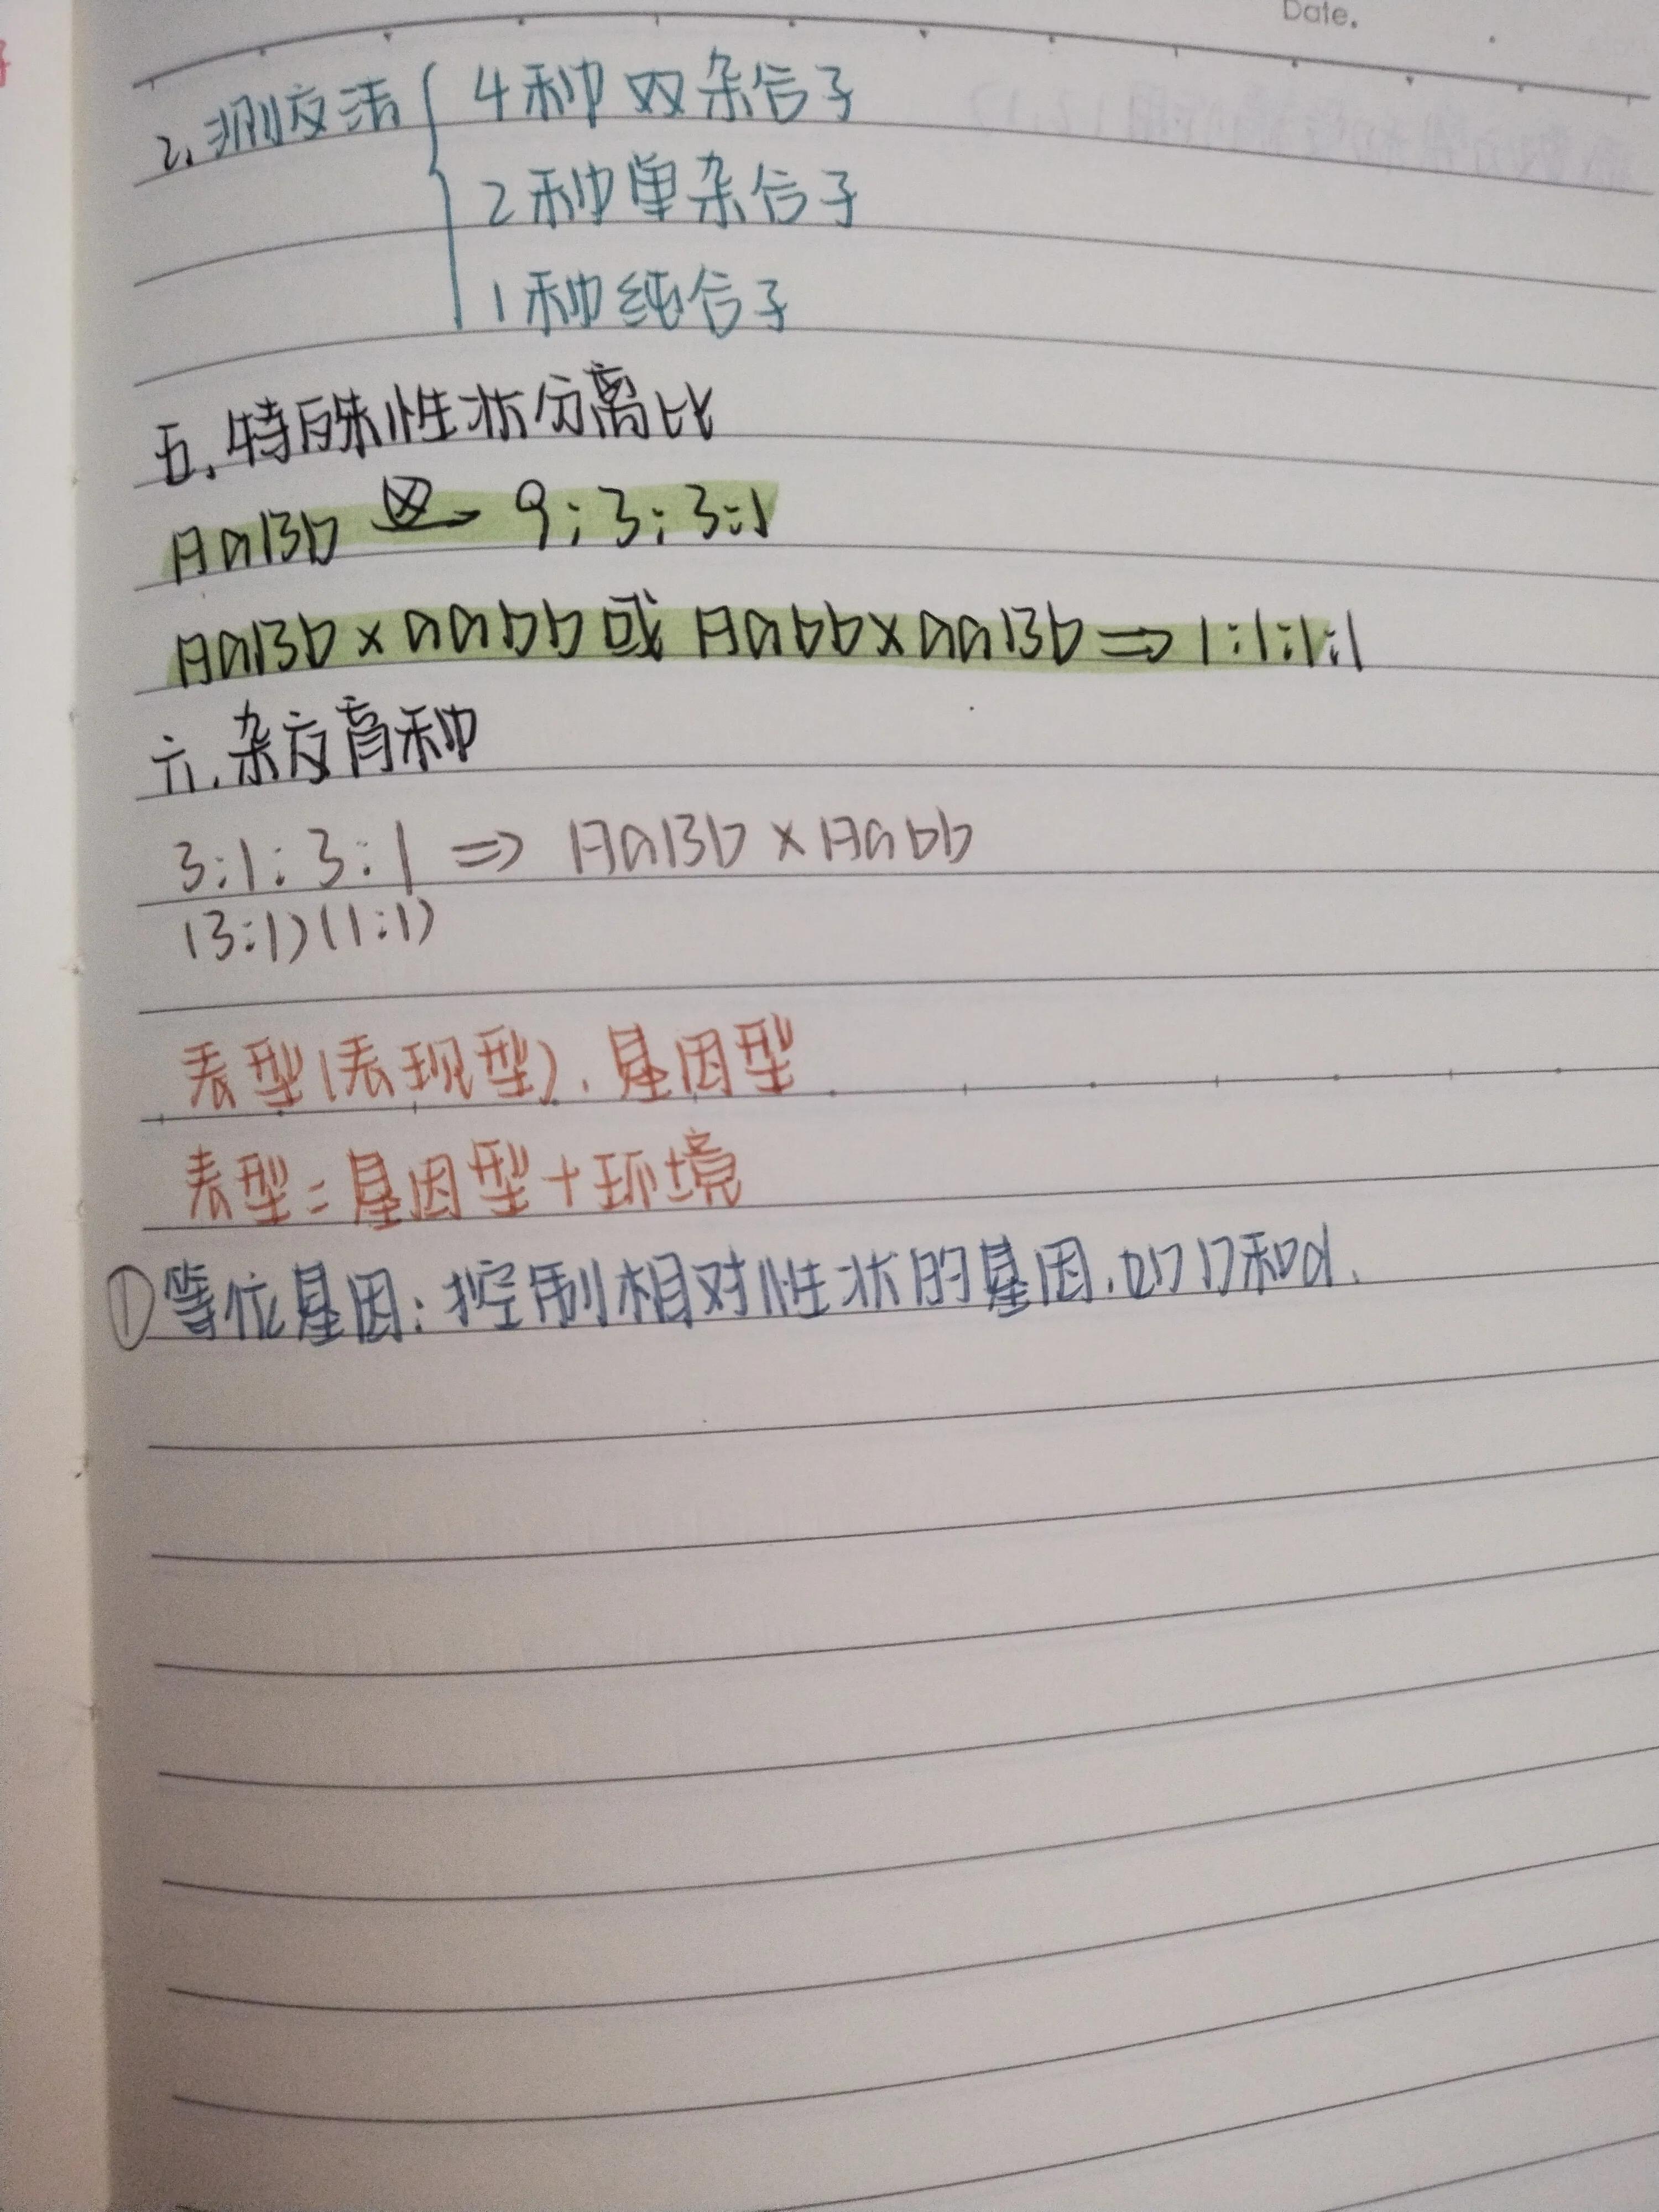 Date.
2.测交法{4种双杂合子
2种单杂合子
1种纯合子
五.特殊性状分离比
AaBb ⊗→ 9:3:3:1
AaBb×aabb或 Aabb×aaBb⇒1:1:1:1
六.杂交育种
3:1:3:1 ⇒ AaBb×Aabb
(3:1)(1:1)
表型(表现型).基因型
表型=基因型+环境
①等位基因:控制相对性状的基因.如D和d.